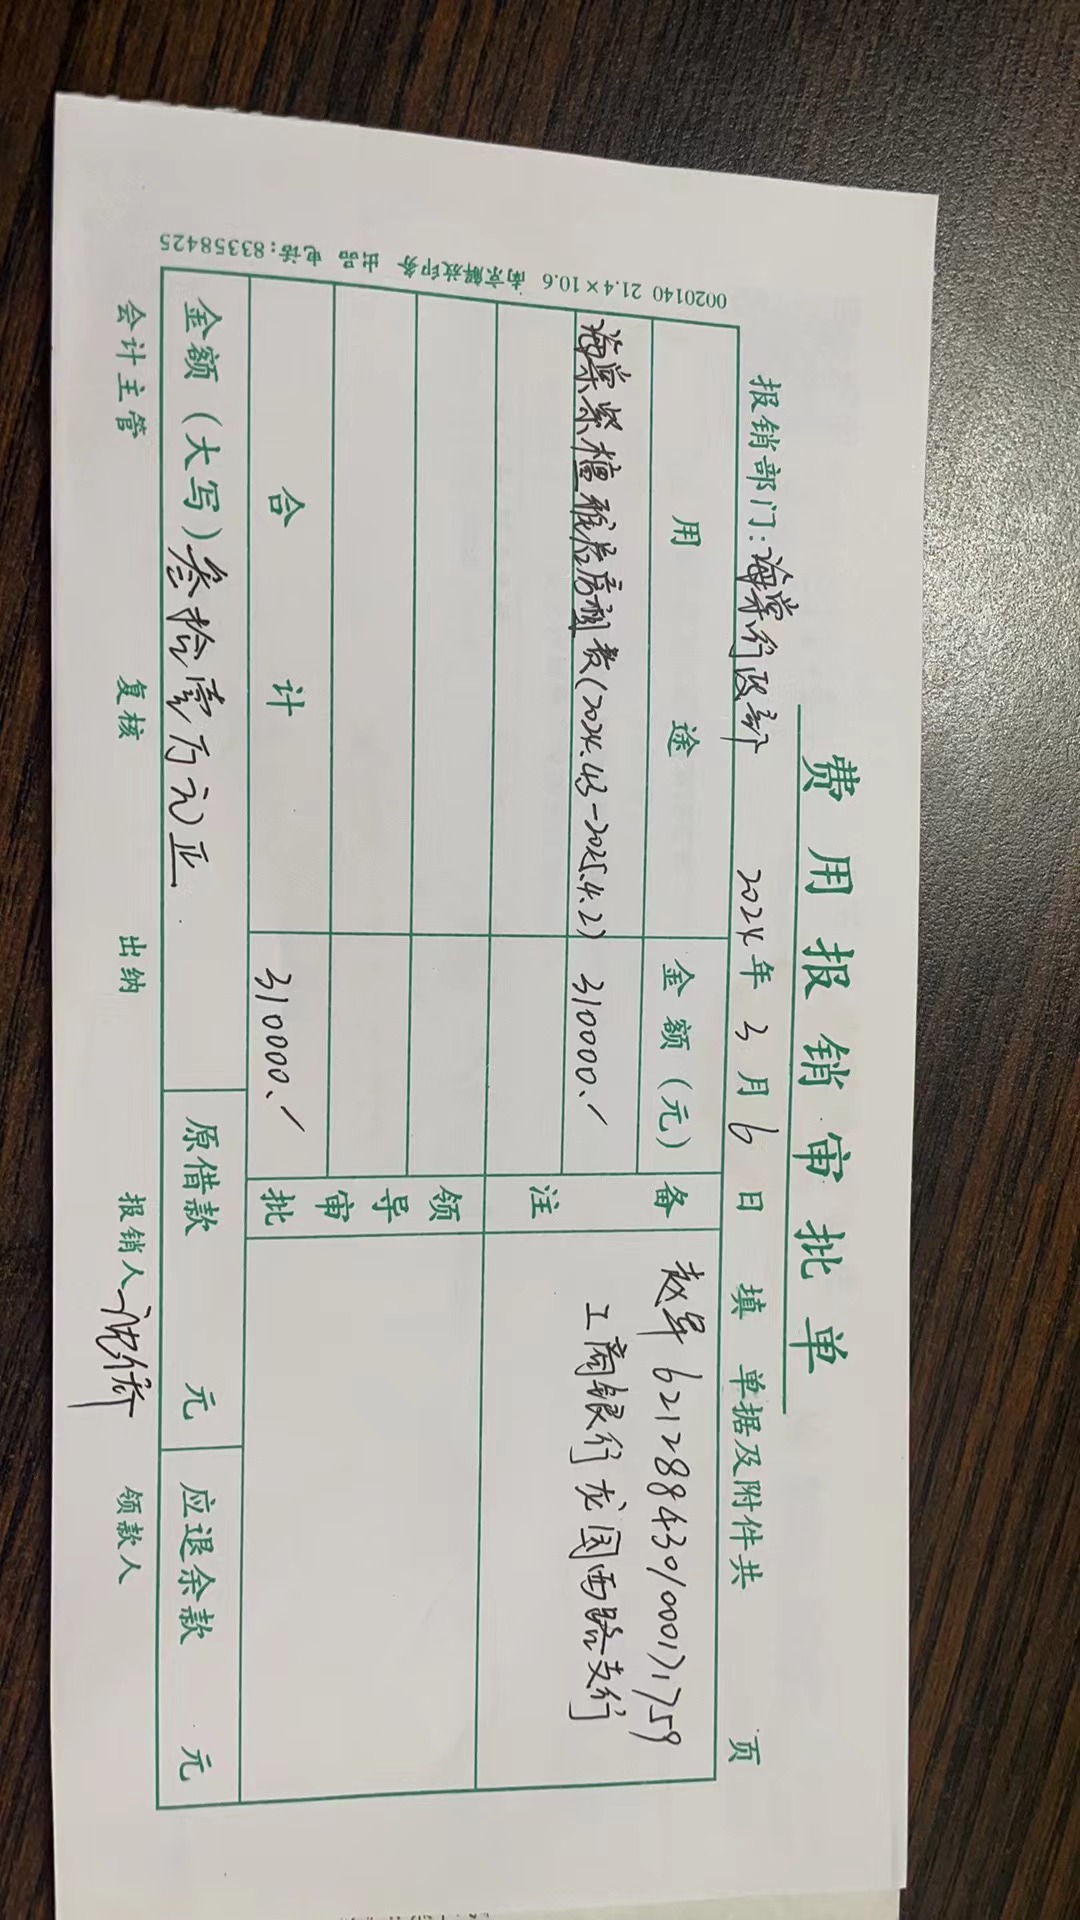 费用报销审批单
报销部门：海棠行政部 2024年3月6日填 单据及附件共 页
用途 金额（元） 备注
海棠紫檀 房租费（2024.4.3-2025.4.2） 310000.
赵军 621288430100017,1759
工商银行龙园西路支行
合计 310000.
领导审批
金额（大写）叁拾壹万元正. 原借款 元 应退余款 元
会计主管 复核 出纳 报销人 领款人
0020140 21.4×10.6 南京解放印务 出品 电话：83358425